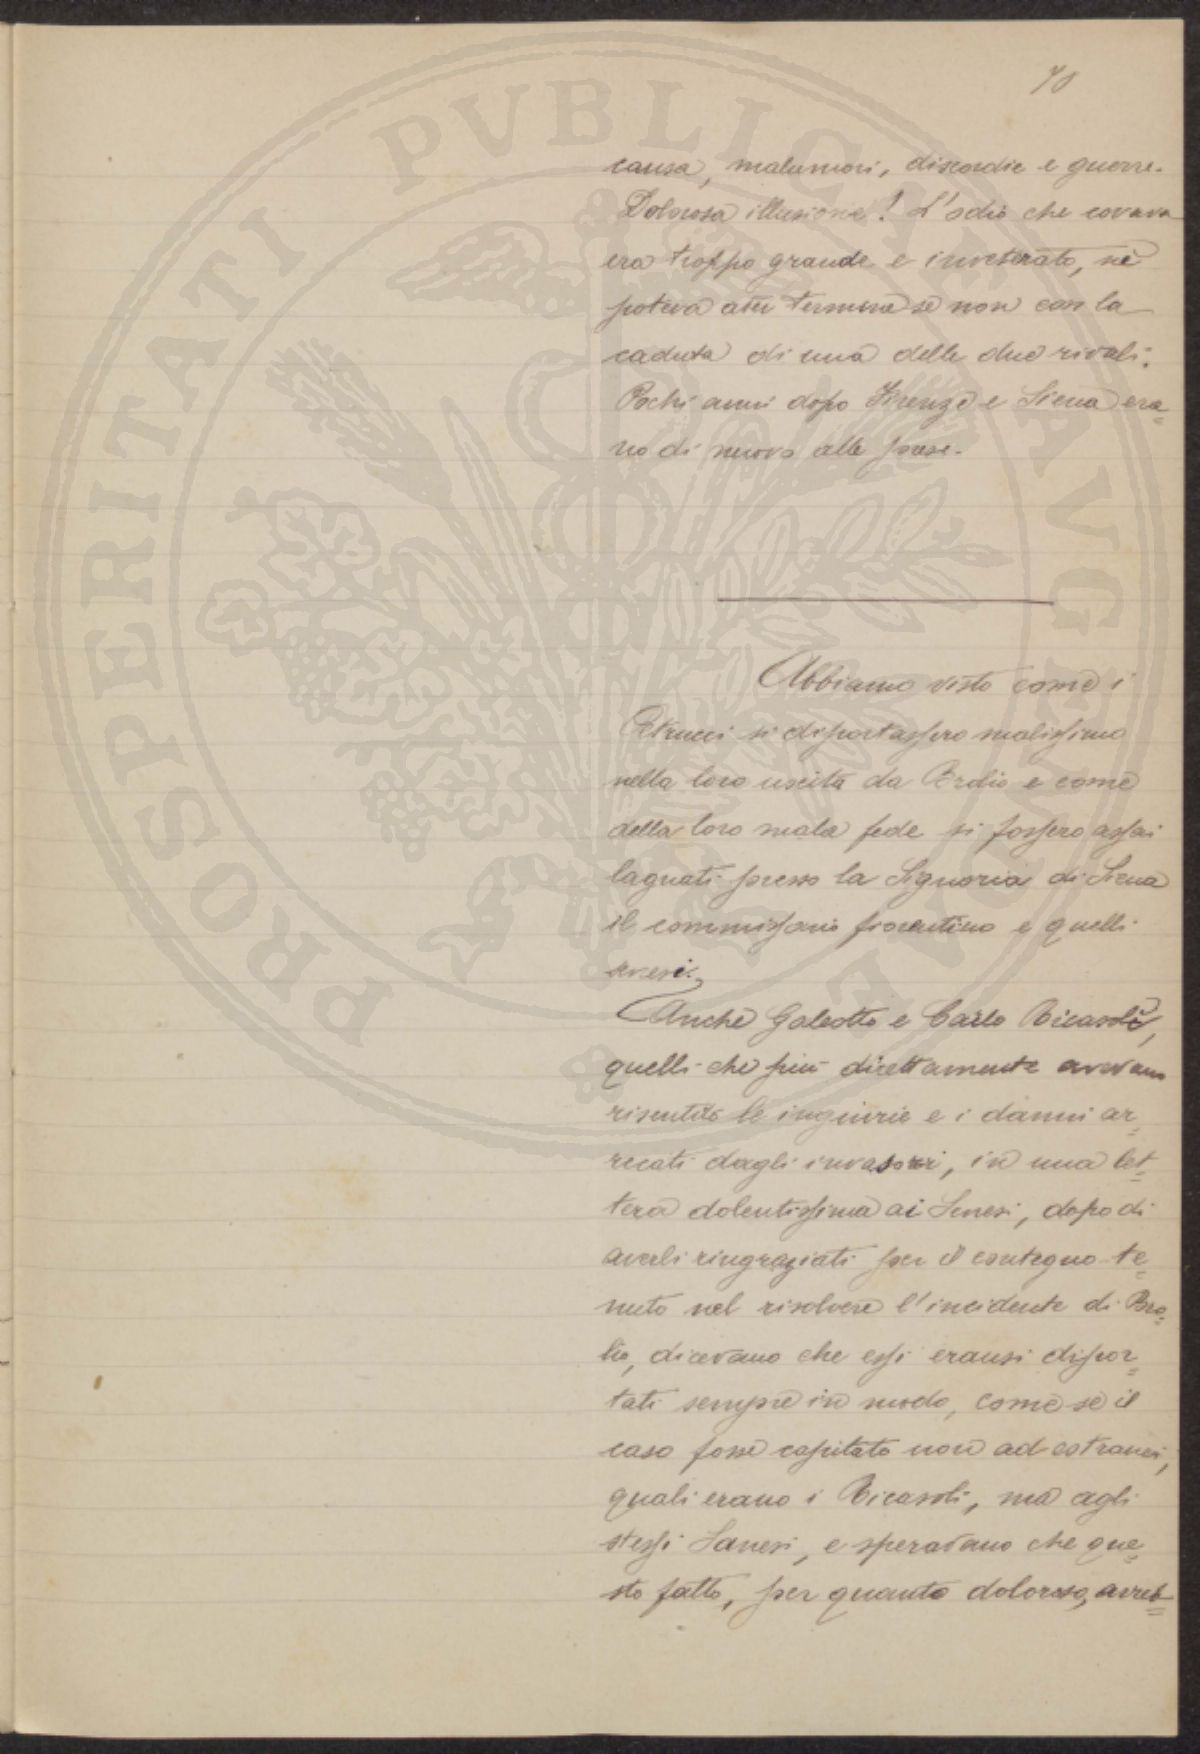 70
causa, malumori, discordie e guerre.
Dolorosa illusione! L'odio che covava
era troppo grande e inveterato, nè
poteva aver termine se non con la
caduta di una delle due rivali.
Pochi anni dopo Firenze e Siena era=
no di nuovo alle prese.
Abbiamo visto come i
Petrucci si diportassero malissimo
nella loro uscita da Brolio e come
della loro mala fede si fossero assai
lagnati presso la Signoria di Siena
il commissario fiorentino e quelli
senesi.
Anche Galeotto e Carlo Ricasoli,
quelli che più direttamente avevano
risentito le ingiurie e i danni ar=
recati dagli invasori, in una let=
tera dolentissima ai Senesi, dopo di
averli ringraziati per il contegno te=
nuto nel risolvere l'incidente di Bro=
lio, dicevano che essi eransi dispor=
tati sempre in modo, come se il
caso fosse capitato non ad estranei,
quali erano i Ricasoli, ma agli
stessi Sanesi, e speravano che que=
sto fatto, per quanto doloroso, avreb=
PROSPERITATI PVBLICAE AVGENDAE